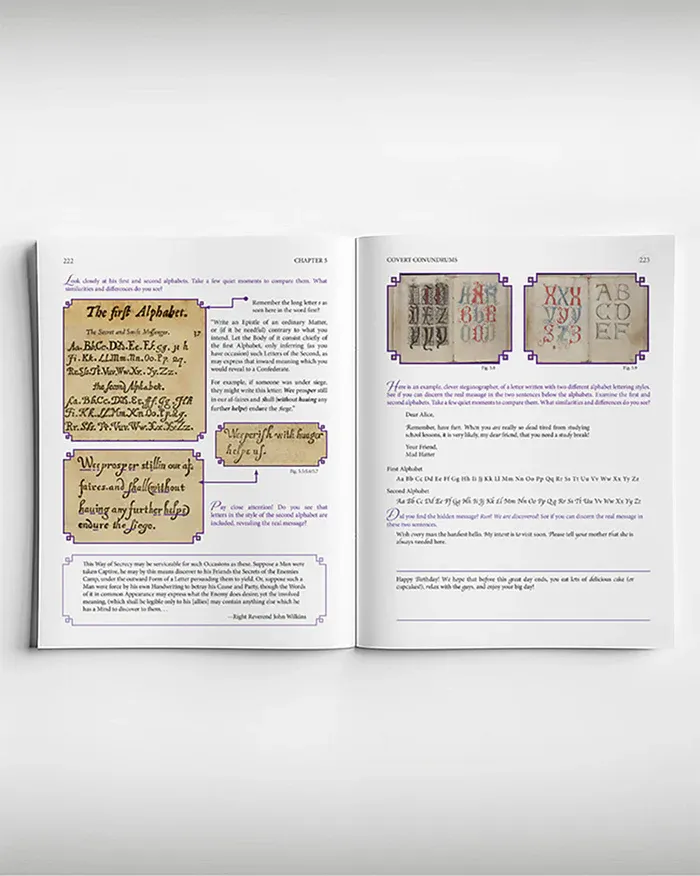 222
CHAPTER 5
Look closely at his first and second alphabets. Take a few quiet moments to compare them. What
similarities and differences do you see?
The first Alphabet.
The Secret and Swift Messenger.
Aa. Bb. Cc. Dd. Ee. Ff. Gg. Hh
Ii. Kk. Ll. Mm. Nn. Oo. Pp. Qq.
Rr. Ss. Tt. Vv. Ww. Xx. Yy. Zz.
the second Alphabet.
Aa. Bb. Cc. Dd. Ee. Ff. Gg. Hh
Ii. Kk. Ll. Mm. Nn. Oo. Pp. Qq.
Rr. Ss. Tt. Vv. Ww. Xx. Yy. Zz.
Remember the long letter s as
seen here in the word first?
"Write an Epistle of an ordinary Matter,
or (if it be needful) contrary to what you
intend. Let the Body of it consist chiefly of
the first Alphabet, only inferring (as you
have occasion) such Letters of the Second, as
may express that inward meaning which you
would reveal to a Confederate.
For example, if someone was under siege,
they might write this letter: Wee prosper still
in our af-faires and shall (without hauing any
further helpe) endure the siege."
Wee prosper still in our af,
faires. and shall (without
hauing any further helpe
endure the siege.
Wee perish with hunger
helpe us.
Fig. 5.5,5.6,5.7
Pay close attention! Do you see that
letters in the style of the second alphabet are
included, revealing the real message?
This Way of Secrecy may be serviceable for such Occasions as these. Suppose a Man were
taken Captive, he may by this means discover to his Friends the Secrets of the Enemies
Camp, under the outward Form of a Letter persuading them to yield. Or, suppose such a
Man were force by his own Handwriting to betray his Cause and Party, though the Words
of it in common Appearance may express what the Enemy does desire, yet the involved
meaning, (which shall be legible only to his [allies] may contain anything else which he
has a Mind to discover to them. . .
—Right Reverend John Wilkins
COVERT CONUNDRUMS
223
XXX
YYY
SZ3
AB
CD
EF
Fig. 5.8
Fig. 5.9
Here is an example, clever steganographer, of a letter written with two different alphabet lettering styles.
See if you can discern the real message in the two sentences below the alphabets. Examine the first and
second alphabets. Take a few quiet moments to compare them. What similarities and differences do you see?
Dear Alice,
Remember, have fun. When you are really so dead tired from studying
school lessons, it is very likely, my dear friend, that you need a study break!
Your Friend,
Mad Hatter
First Alphabet
Aa Bb Cc Dd Ee Ff Gg Hh Ii Jj Kk Ll Mm Nn Oo Pp Qq Rr Ss Tt Uu Vv Ww Xx Yy Zz
Second Alphabet
Aa Bb Cc Dd Ee Ff Gg Hh Ii Jj Kk Ll Mm Nn Oo Pp Qq Rr Ss Tt Uu Vv Ww Xx Yy Zz
Did you find the hidden message? Run! We are discovered! See if you can discern the real message in
these two sentences.
Wish every man the handiest hello. My intent is to visit soon. Please tell your mother that she is
always needed here.
Happy Birthday! We hope that before this great day ends, you eat lots of delicious cake (or
cupcakes!), relax with the guys, and enjoy your big day!